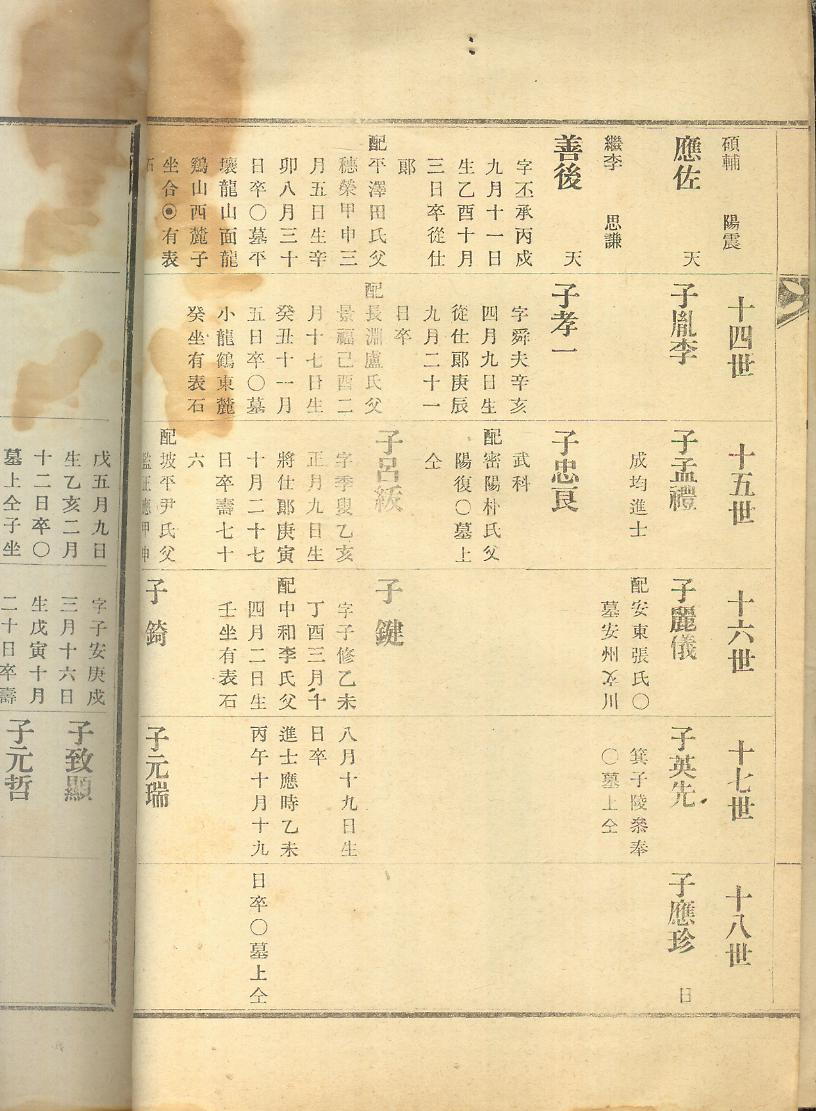 碩輔 陽震
應佐 天
繼李 思謙
善後 天
字丕承丙戍
九月十一日
生乙酉十月
三日卒從仕
郞
配平澤田氏父
穗榮甲申三
月五日生辛
卯八月三十
日卒〇墓平
壤龍山面龍
鷄山西麓子
坐合⦿有表
石
十四世
子胤李
子孝一
字舜夫辛亥
四月九日生
從仕郞庚辰
九月二十一
日卒
配長淵盧氏父
景福己酉二
月十七日生
癸丑十一月
五日卒〇墓
小龍鶴東麓
癸坐有表石
十五世
子孟禮
成均進士
子忠良
武科
配密陽朴氏父
陽復〇墓上
仝
子呂綏
字季叟乙亥
正月九日生
將仕郞庚寅
十月二十七
日卒壽七十
六
配坡平尹氏父
十六世
子麗儀
配安東張氏〇
墓安州文川
子鍵
字子修乙未
丁酉三月十
配中和李氏父
四月二日生
壬坐有表石
子錡
十七世
子英先
箕子陵叅奉
〇墓上仝
八月十九日生
日卒
進士應時乙未
丙午十月十九
子元瑞
十八世
子應珍 日
日卒〇墓上仝
戊五月九日
生乙亥二月
十二日卒〇
墓上仝子坐
字子安庚戍
三月十六日
生戊寅十月
二十日卒壽
子致顯
子元哲